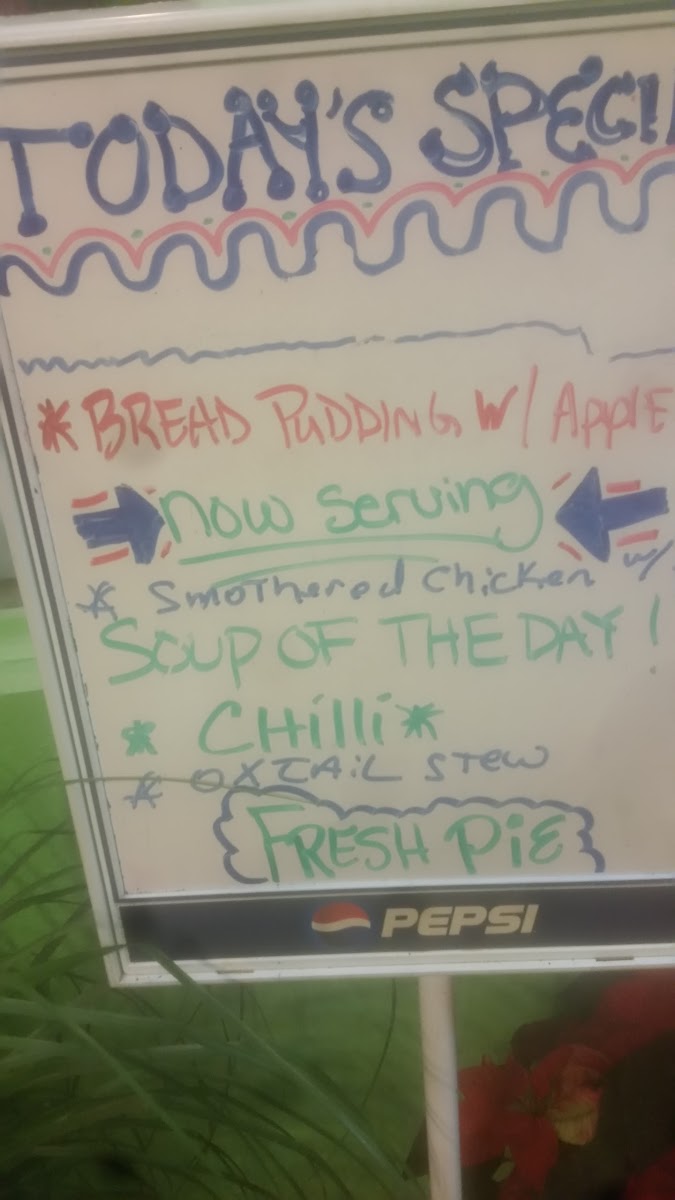 TODAY'S SPECI
*BREAD PUDDING W/ APPLE
now serving
* Smothered Chicken w/
SOUP OF THE DAY!
* CHilli*
* OXTAIL STEW
FRESH PiE
PEPSI